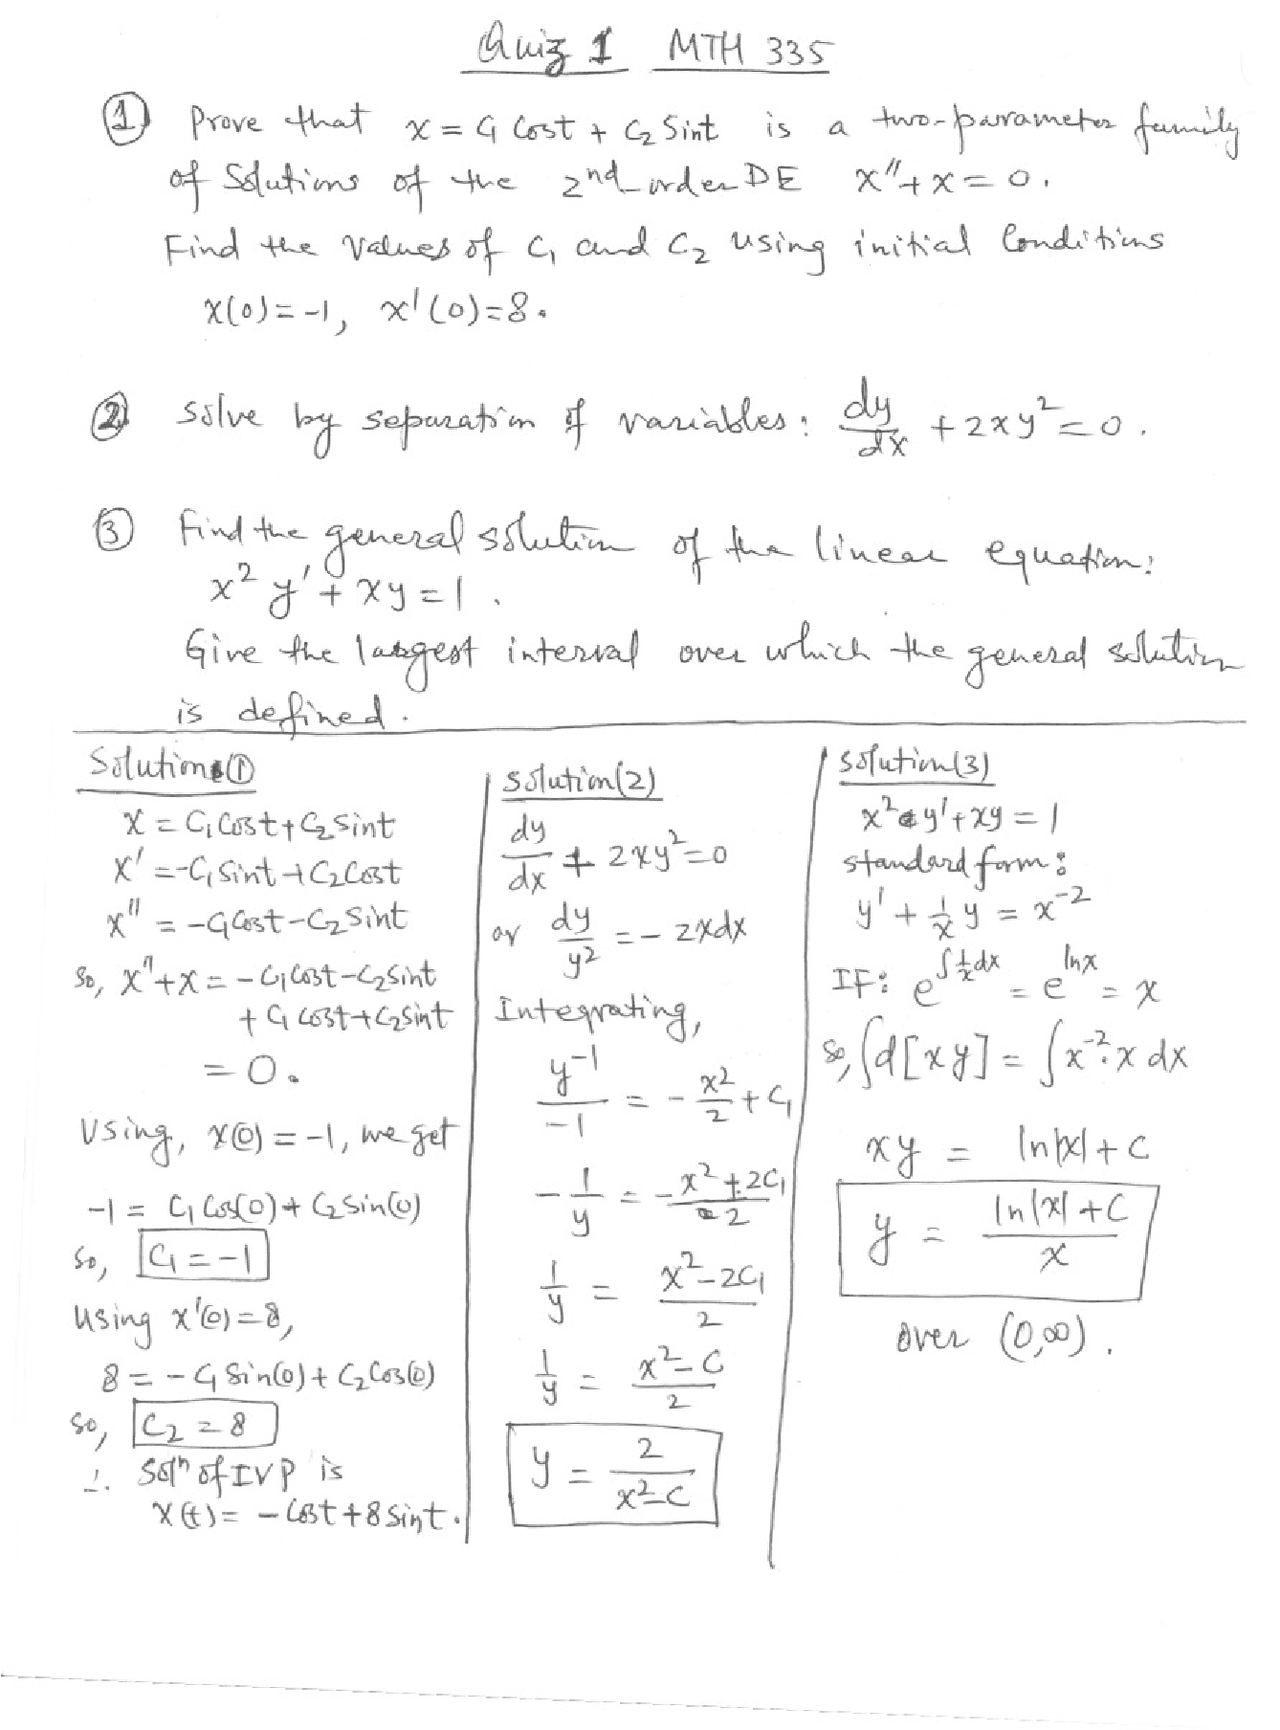 Quiz 1 MTH 335
① Prove that x = C₁ Cost + C₂ Sint is a two-parameter family
of Solutions of the 2nd-order DE x″ + x = 0.
Find the Values of C₁ and C₂ using initial Conditions
x(0) = -1, x′(0) = 8.
② Solve by separation of variables: dy/dx + 2xy² = 0.
③ Find the general solution of the linear equation:
x² y′ + xy = 1.
Give the largest interval over which the general solution
is defined.
Solution ①
x = C₁ Cost + C₂ Sint
x′ = -C₁ Sint + C₂ Cost
x″ = -C₁ Cost - C₂ Sint
So, x″ + x = -C₁ Cost - C₂ Sint
+ C₁ Cost + C₂ Sint
= 0.
Using, x(0) = -1, we get
-1 = C₁ Cos(0) + C₂ Sin(0)
So, C₁ = -1
Using x′(0) = 8,
8 = -C₁ Sin(0) + C₂ Cos(0)
So, C₂ = 8
∴ Solⁿ of IVP is
x(t) = - Cost + 8 Sint.
Solution (2)
dy/dx + 2xy² = 0
or dy/y² = - 2xdx
Integrating,
y⁻¹/-1 = - x²/2 + C₁
- 1/y = -x² + 2C₁/2
1/y = x² - 2C₁/2
1/y = x² - C/2
y = 2/x² - C
Solution (3)
x² y′ + xy = 1
standard form:
y′ + 1/x y = x⁻²
IF: e^∫1/x dx = e^lnx = x
So, ∫d[xy] = ∫x⁻²·x dx
xy = ln|x| + C
y = ln|x| + C/x
over (0,∞).